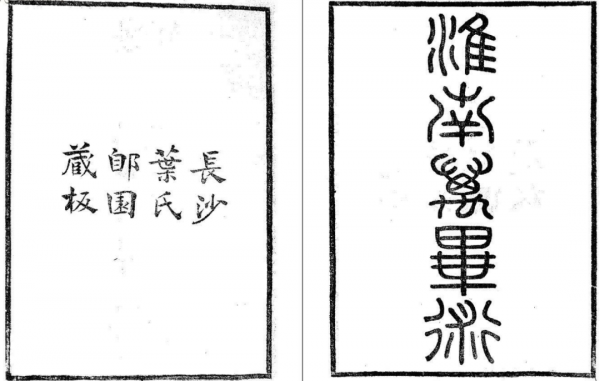 淮南萬畢術
長沙
葉氏
郋園
藏板